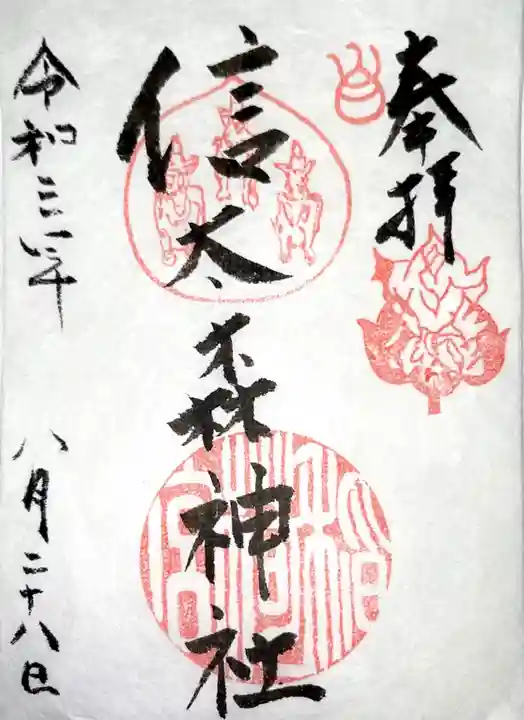 奉拝
信太森神社
令和三年 八月二十八日